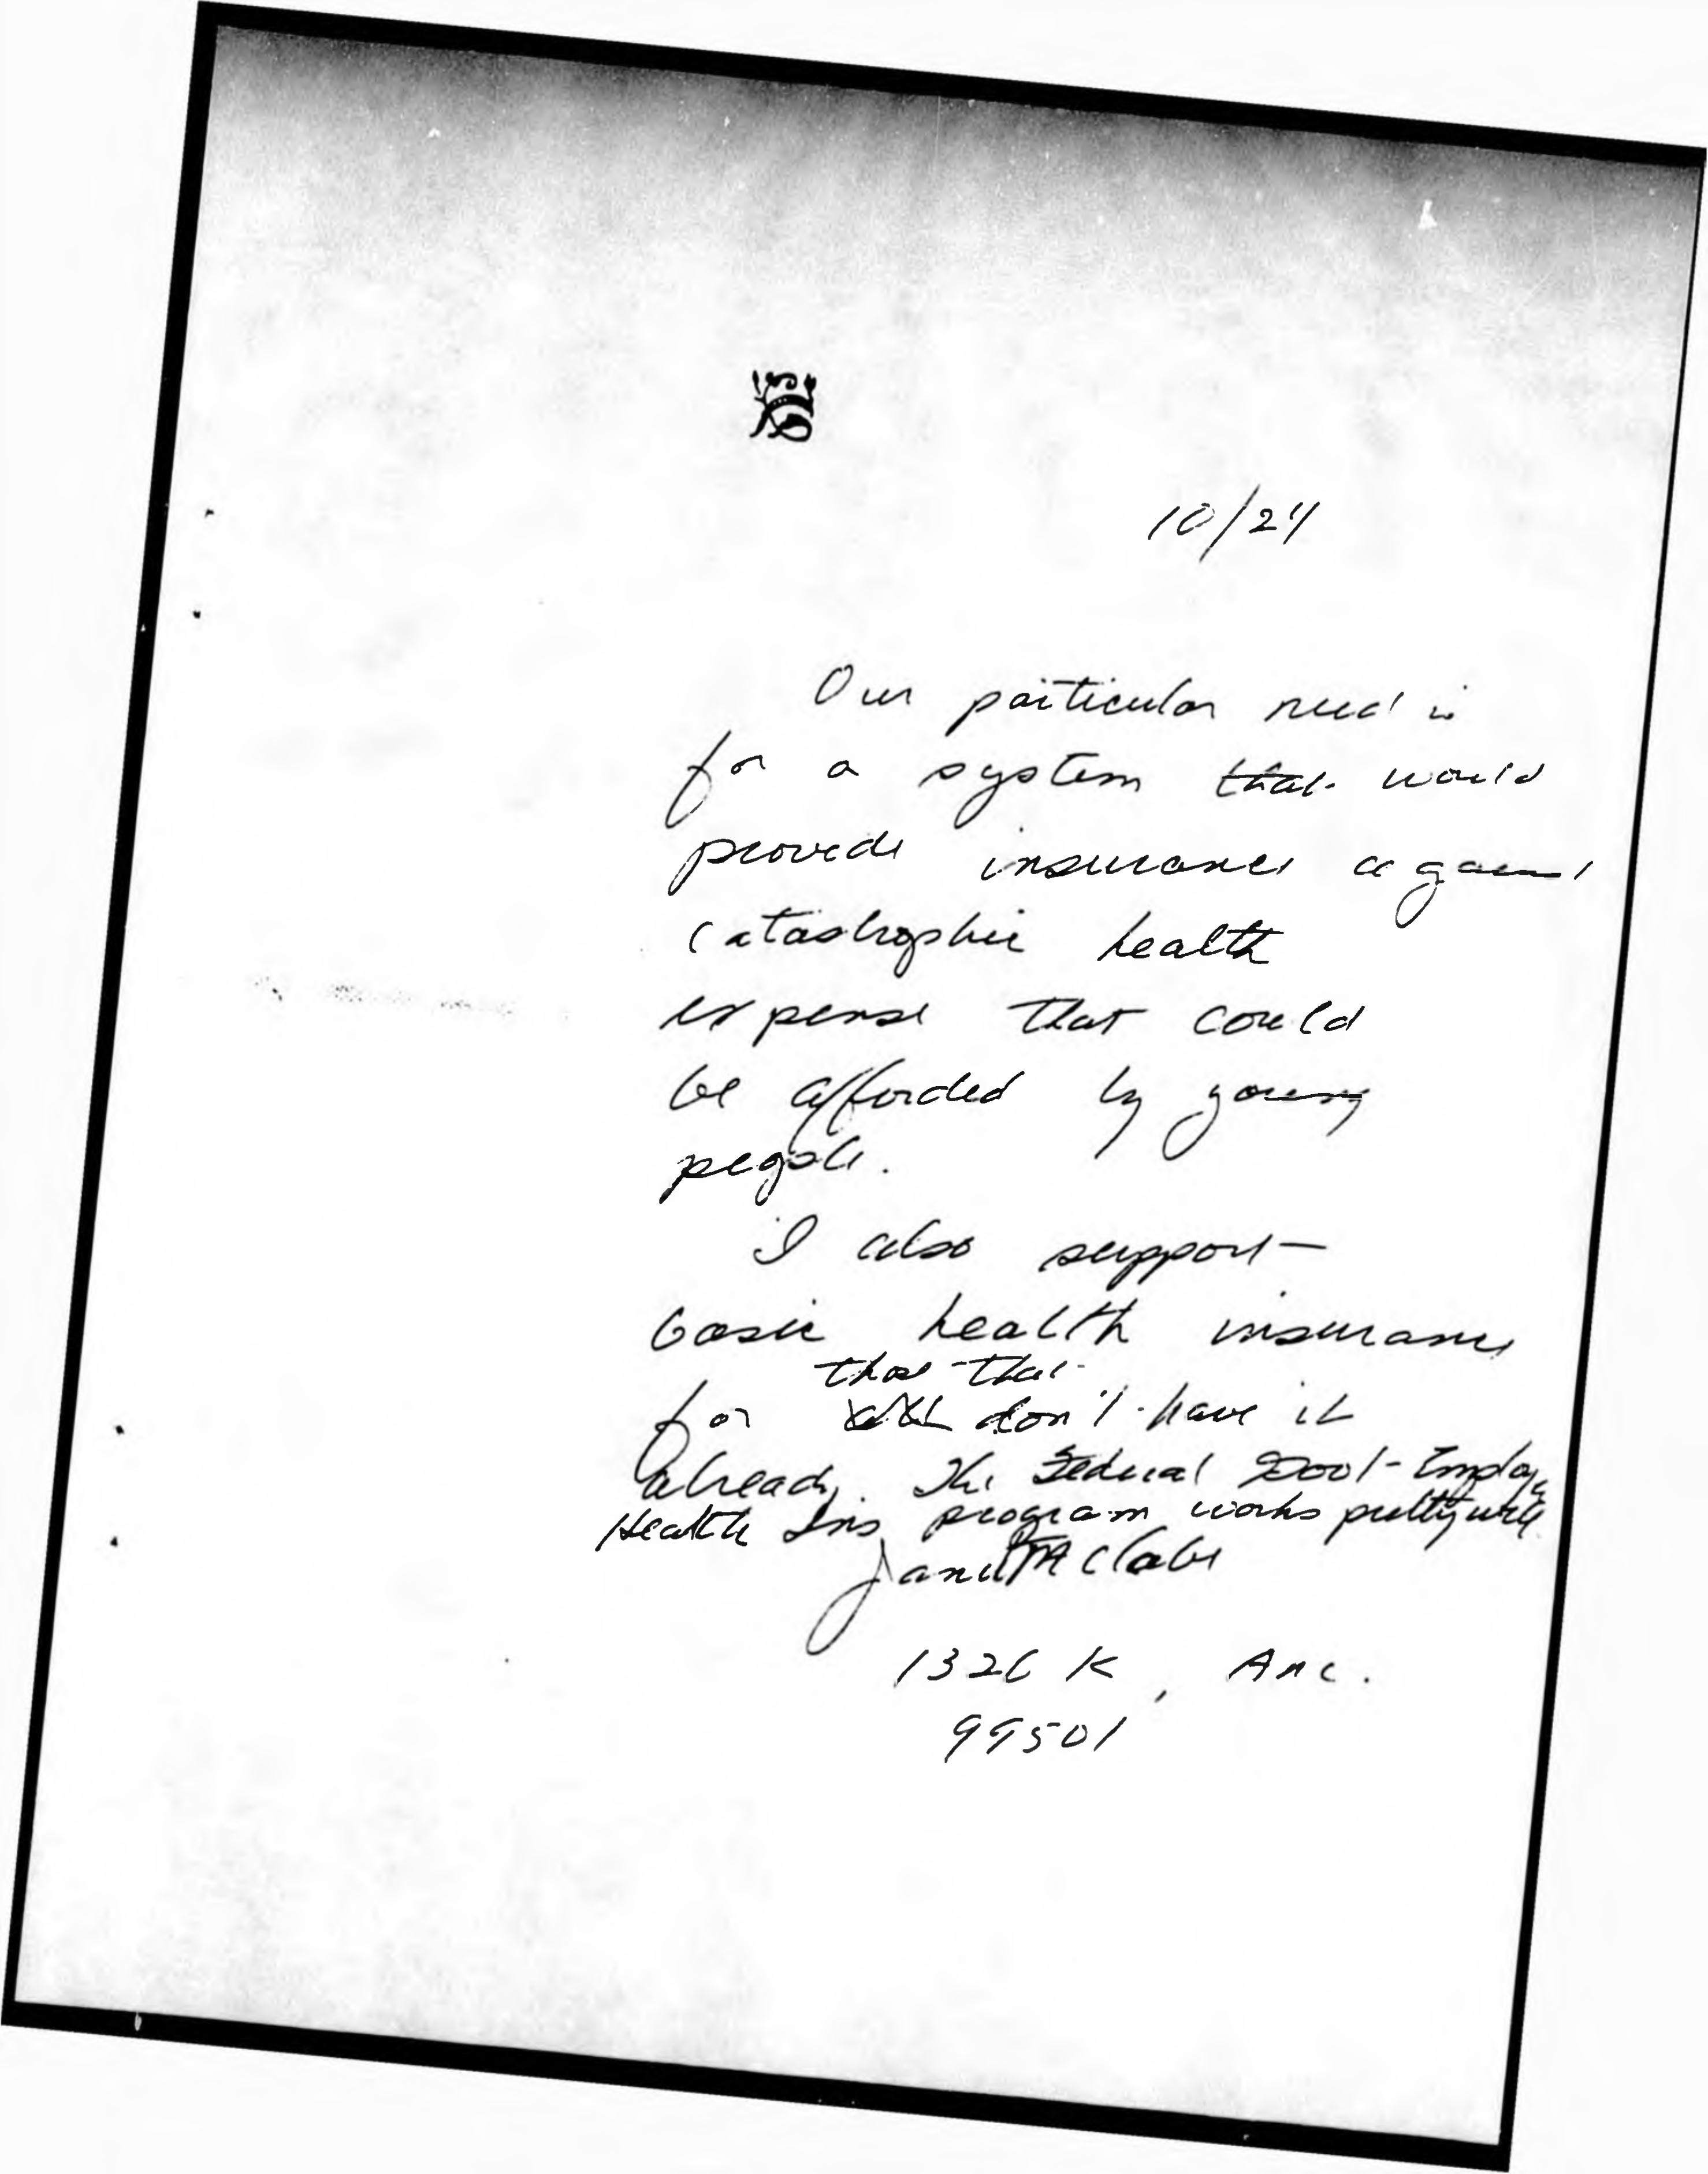 10/24
Our particular need is
for a system that would
provide insurance against
catastrophic health
expense that could
be afforded by young
people.
I also support
basic health insurance
those that
for don't have it
already. The Federal Gov't Employee
Health Ins program works pretty well
Janet McCabe
1326 K, Anc.
99501